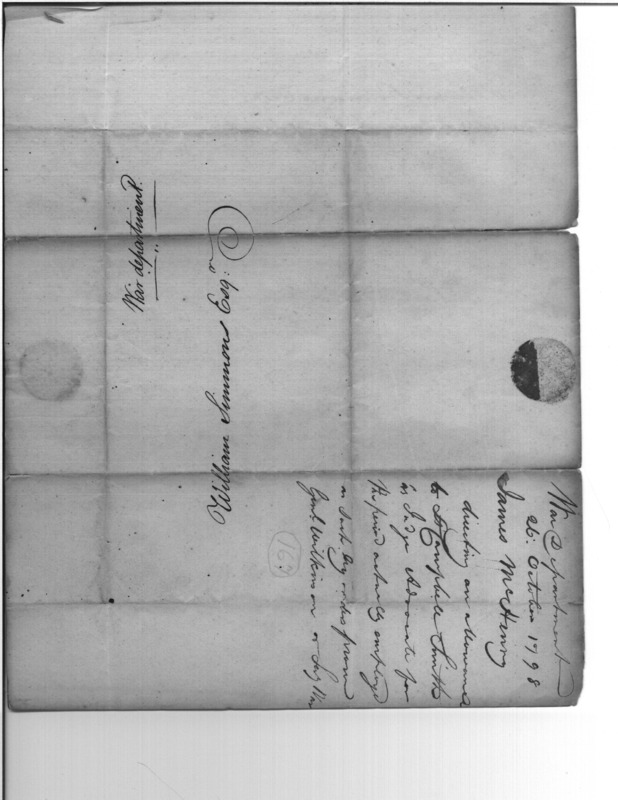 War department.
William Simmons Esqr.
War Department
26. October 1798
James McHenry
directing an allowance
to Campbell Smith
as Judge Advocate for
the period actually employed
as such by orders from
Genl. Wilkinson
167